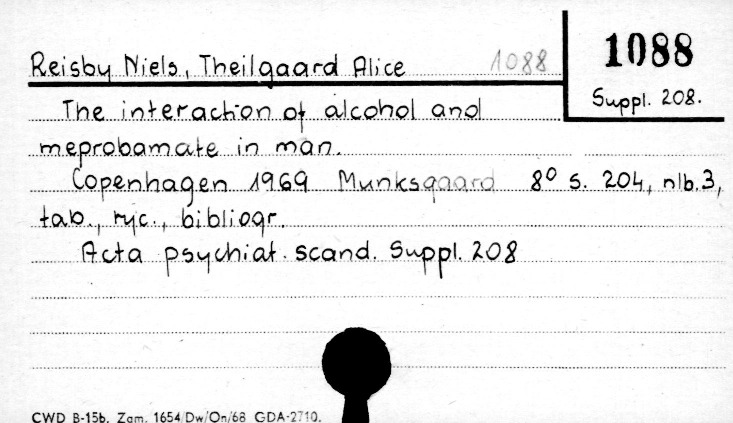 Reisby Niels, Theilgaard Alice 1088
1088
Suppl. 208.
The interaction of alcohol and
meprobamate in man.
Copenhagen 1969 Munksgaard 8° s. 204, nlb.3,
tab., ryc., bibliogr.
Acta psychiat. scand. Suppl. 208
CWD B-15b. Zam. 1654/Dw/On/68 GDA-2710.